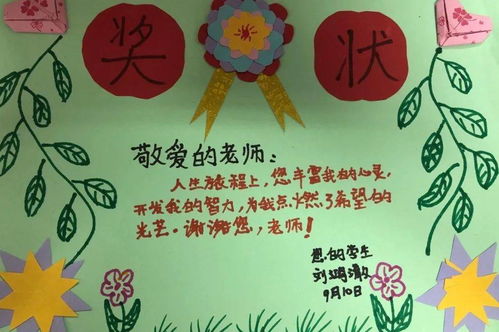 奖 状
敬爱的老师：
人生旅程上，您丰富我的心灵，
开发我的智力，为我点燃了希望的
光芒。谢谢您，老师！
您的学生
刘溯澈
9月10日